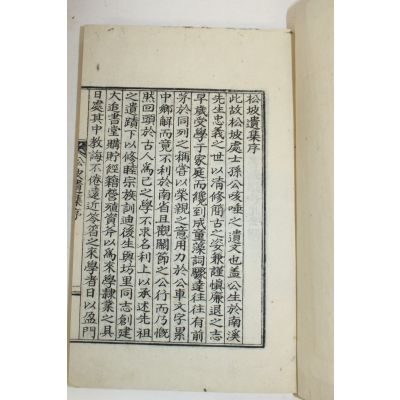 松坡遺集序
此故松坡處士孫公咳唾之遺文也盖公生於南溪
先生忠義之世以清修簡古之姿兼謹慎廉退之志
早歲受學于家庭而纔到成童藻詞驟達往往有前
茅於同列之稱嘗以榮親之意用力於公車文字累
中鄉解而竟不利於南省且觀關節之公行而乃慨
然回頭於古人爲己之學不求名利上以承述先祖
之遺蹟下以修睦宗族訓迪後生與坊里同志創建
大追書堂購貯經籍營殖資斧以爲來學隷業之具
日處其中教誨不倦遠近笭箵之來學者日以盈門
松坡遺集序